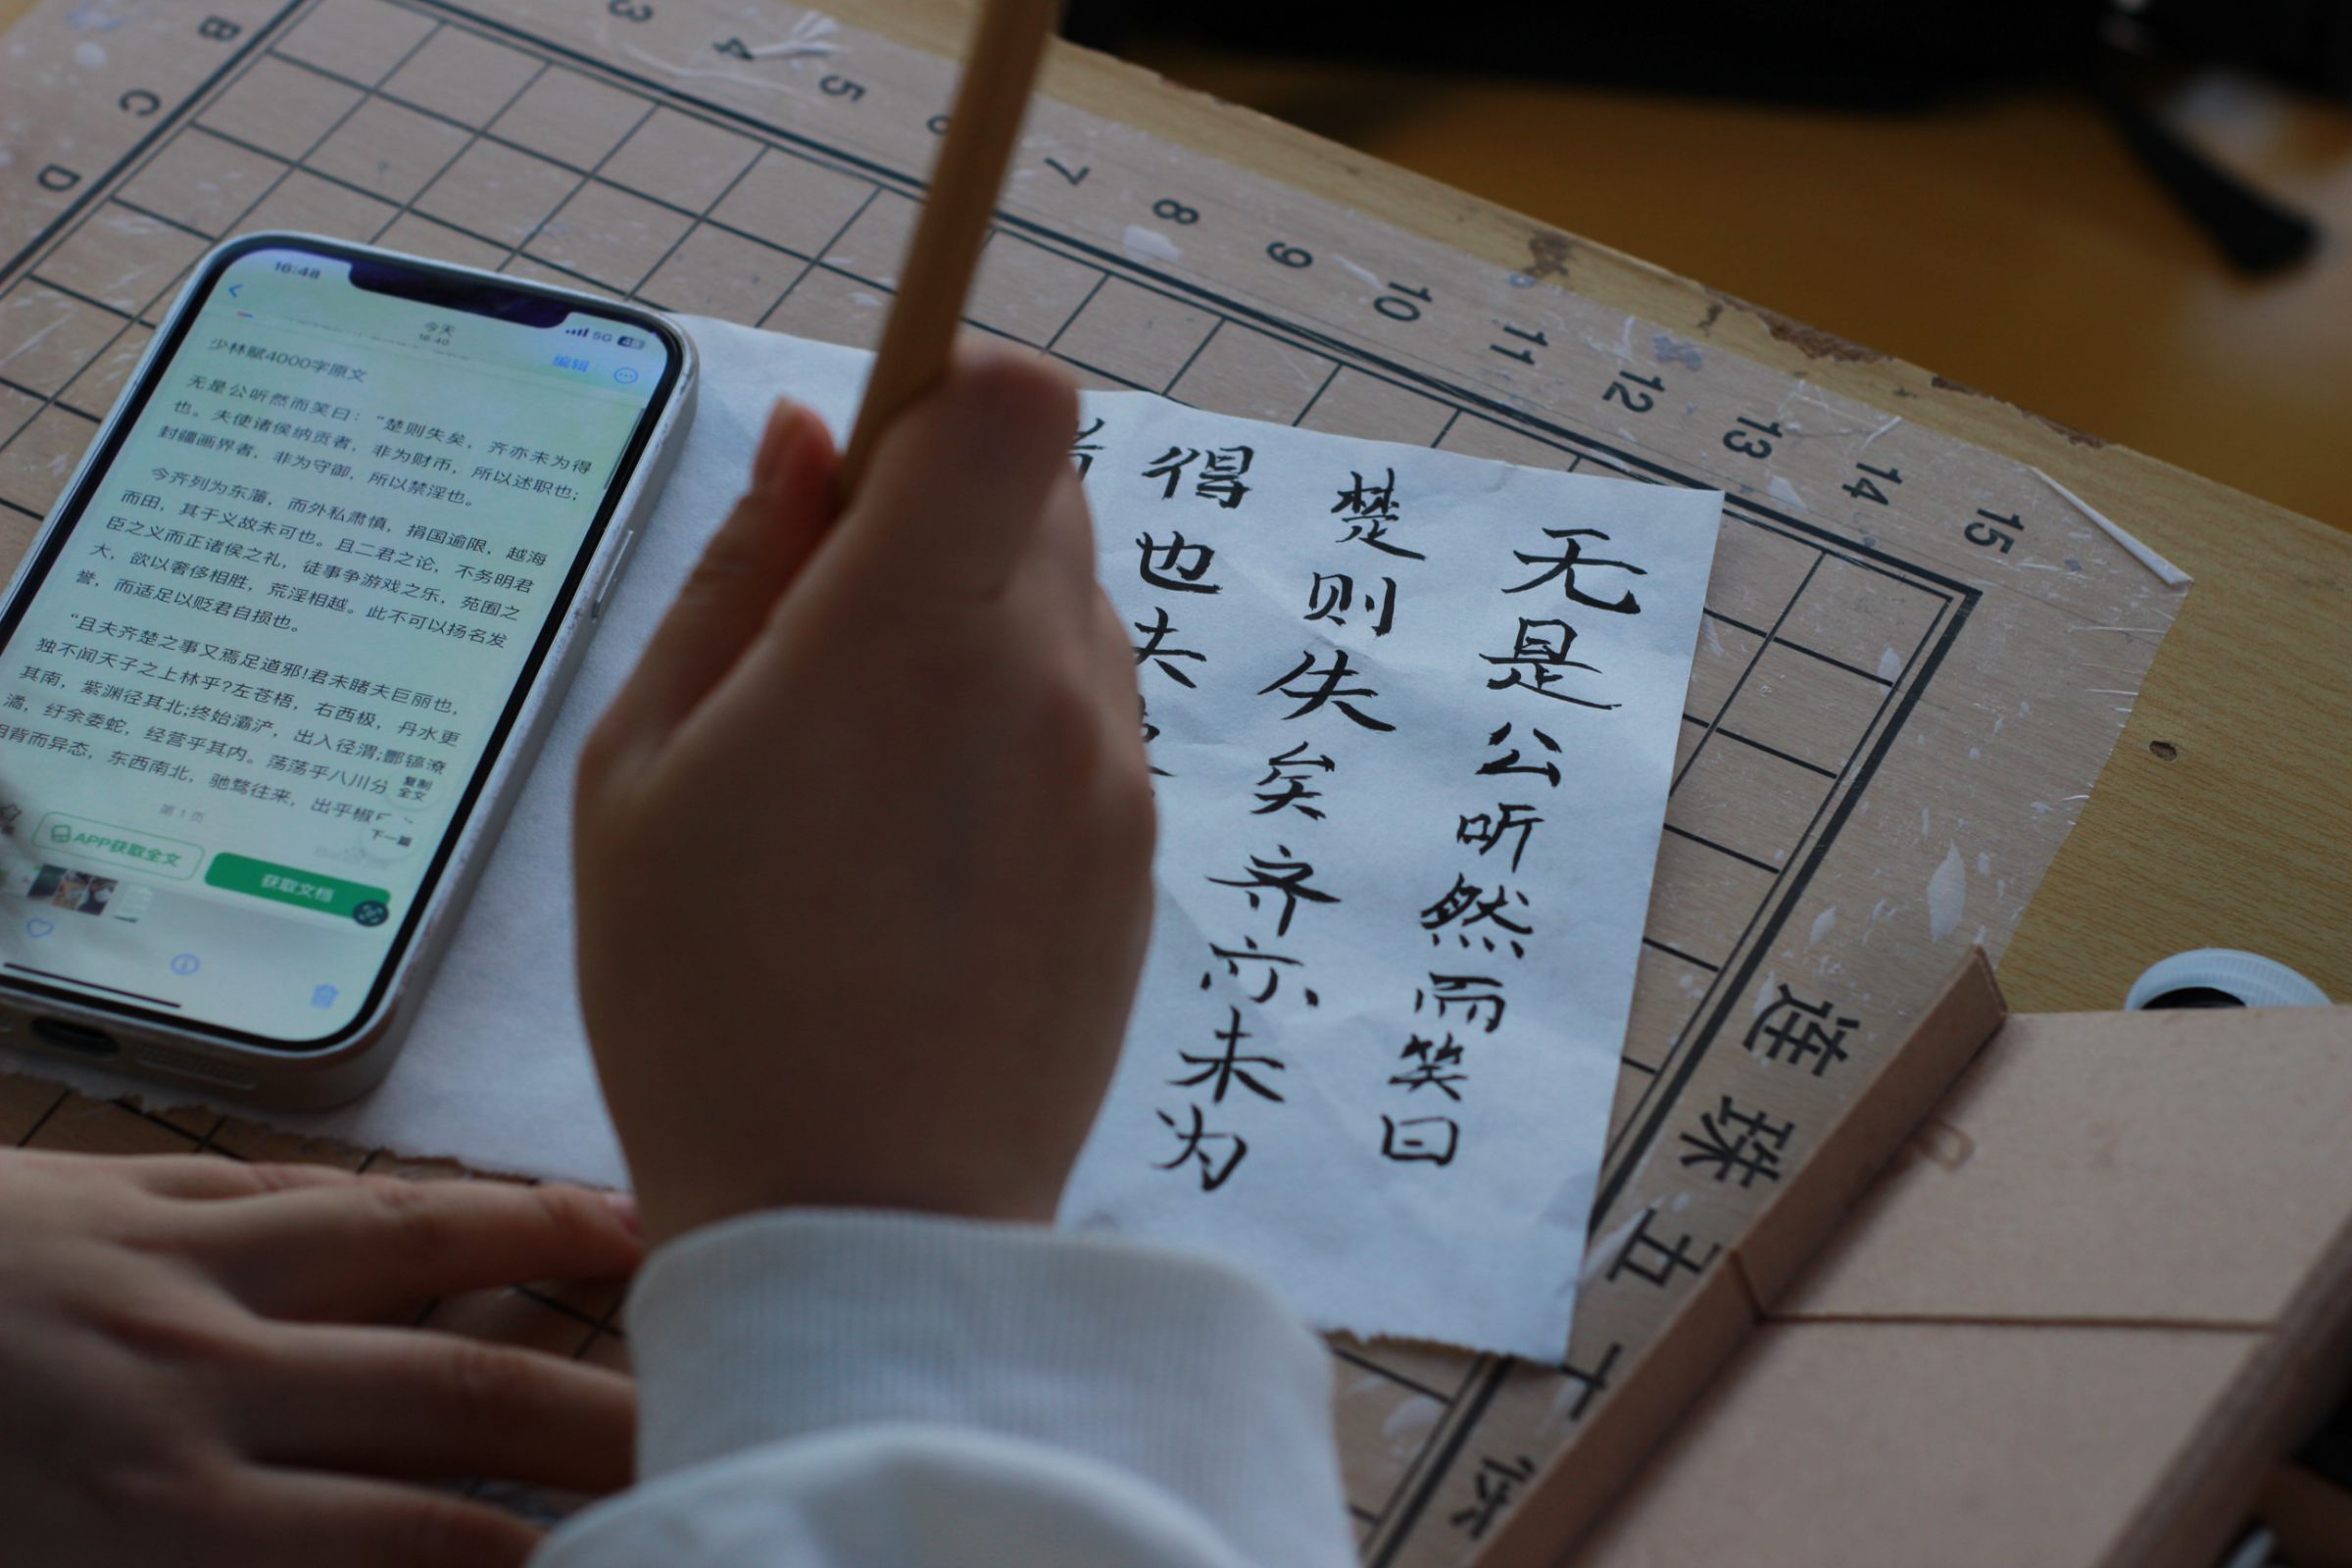 3 4 5 6 7 8 9 10 11 12 13 14 15
B
C
D
16:48
5G 48
今天
16:40
编辑
少林赋4000字原文
无是公听然而笑曰：“楚则失矣，齐亦未为得
也。夫使诸侯纳贡者，非为财币，所以述职也；
封疆画界者，非为守御，所以禁淫也。
今齐列为东藩，而外私肃慎，捐国逾限，越海
而田，其于义故未可也。且二君之论，不务明君
臣之义而正诸侯之礼，徒事争游戏之乐，苑囿之
大，欲以奢侈相胜，荒淫相越。此不可以扬名发
誉，而适足以贬君自损也。
“且夫齐楚之事又焉足道邪!君未睹夫巨丽也，
独不闻天子之上林乎?左苍梧，右西极，丹水更
其南，紫渊径其北;终始灞浐，出入径渭;酆镐潦
潏，纡余委蛇，经营乎其内。荡荡乎八川分
相背而异态，东西南北，驰骛往来，出乎椒
复制
全文
第1页
下一篇
APP获取全文
获取文档
无是公听然而笑曰
楚则失矣齐亦未为
得也夫
连珠五